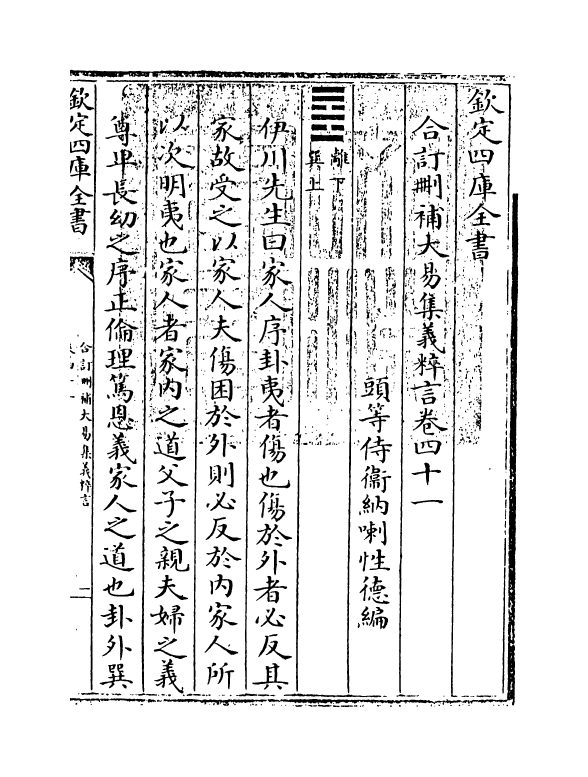 欽定四庫全書
合訂刪補大易集義粹言卷四十一
頭等侍衛納喇性德編
離下
巽上
伊川先生曰家人序卦夷者傷也傷於外者必反其
家故受之以家人夫傷困於外則必反於內家人所
以次明夷也家人者家內之道父子之親夫婦之義
尊卑長幼之序正倫理篤恩義家人之道也卦外巽
欽定四庫全書
合訂刪補大易集義粹言
一